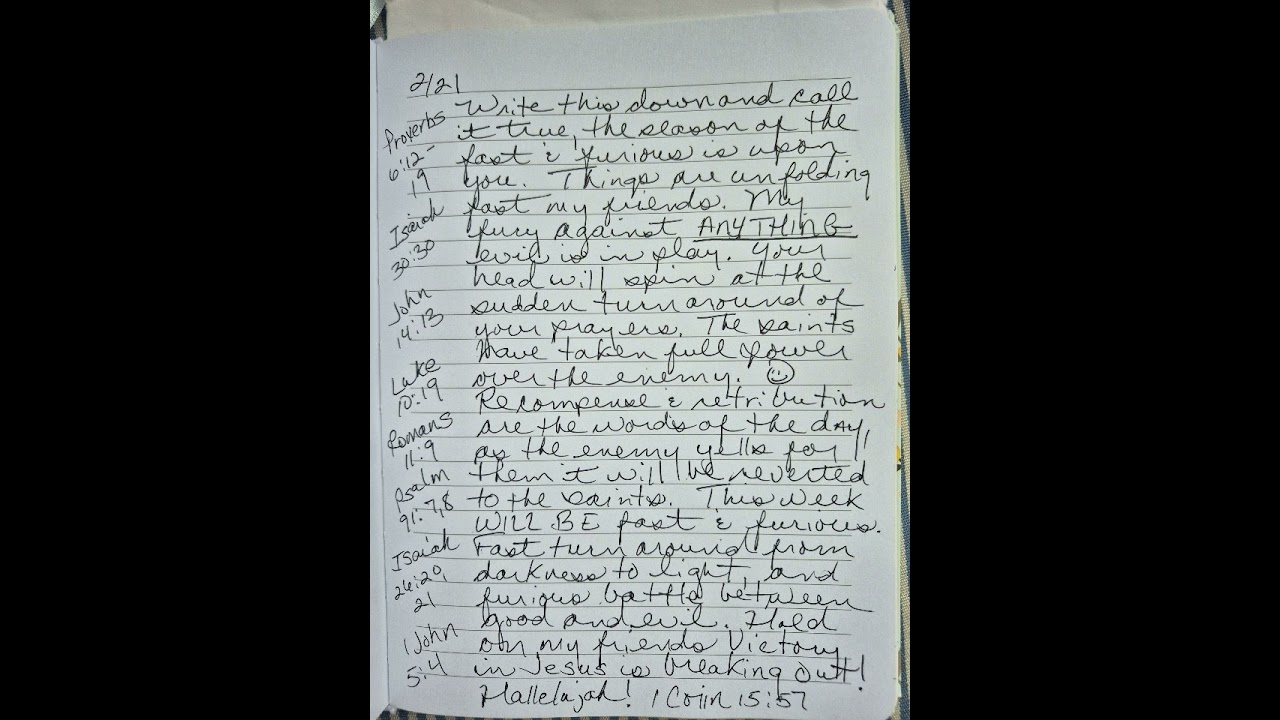 2/21
Write this down and call
Proverbs it true, the season of the
6:12- fast & furious is upon
19 you. Things are unfolding
Isaiah fast my friends. My
30:30 fury against ANYTHING
evil is in play. Your
head will spin at the
John sudden turn around of
14:13 your prayers. The saints
have taken full power
Luke over the enemy. ☺
10:19 Recompense & retribution
Romans are the words of the dAy,
11:9 as the enemy yells for
Psalm them it will be reverted
91:7,8 to the saints. This week
WILL BE fast & furious.
Isaiah Fast turn around from
26:20, darkness to light, and
21 furious battle between
good and evil. Hold
1 John on my friends Victory
5:4 in Jesus is breaking out!
Hallelujah! 1 Corin 15:57